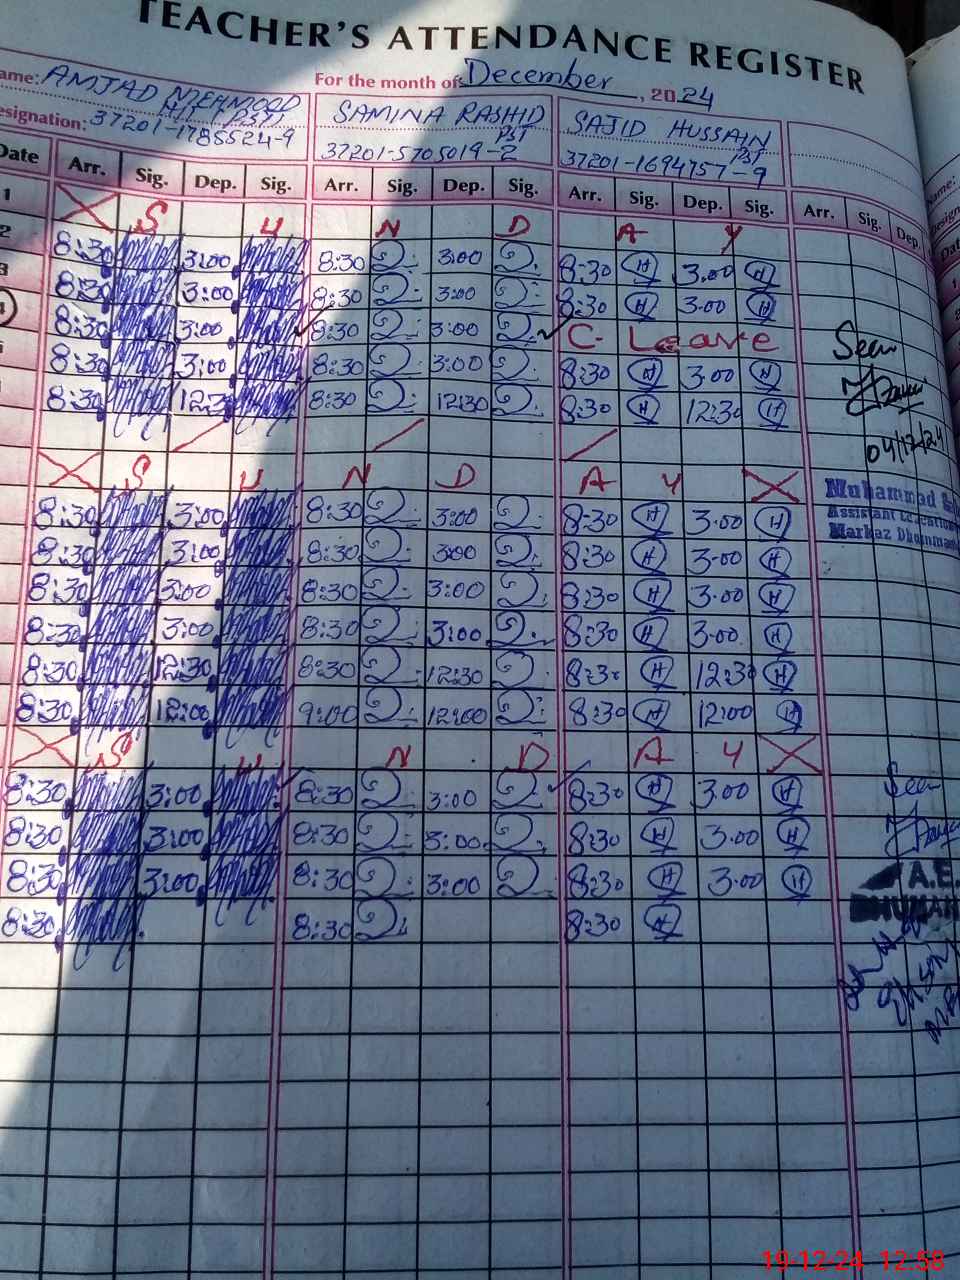 TEACHER'S ATTENDANCE REGISTER
ame: AMJAD MEHMOOD For the month of December, 2024
esignation: 37201-1785524-9 SAMINA RASHID PST 37201-5705019-2 SAJID HUSSAIN PST 37201-1694757-9 Name:
Date Arr. Sig. Dep. Sig. Arr. Sig. Dep. Sig. Arr. Sig. Dep. Sig. Arr. Sig. Dep.
1 S U N D A Y
2 8:30 3:00 8:30 3:00 8:30 H 3.00 H
3 8:30 3:00 8:30 3:00 8:30 H 3.00 H
4 8:30 3:00 8:30 3:00 C- Leave Seen
8:30 3:00 8:30 3:00 8:30 H 3.00 H
8:30 12:30 8:30 12:30 8:30 H 12:30 H
04/12/24
S U N D A Y
Muhammad
8:30 3:00 8:30 3:00 8:30 H 3.00 H Assistant Education
Markaz Dhumman
8:30 3:00 8:30 3:00 8:30 H 3.00 H
8:30 3:00 8:30 3:00 8:30 H 3.00 H
8:30 3:00 8:30 3:00 8:30 H 3.00 H
8:30 12:30 8:30 12:30 8:30 H 12:30 H
8:30 12:00 9:00 12:00 8:30 H 12:00 H
S U N D A Y
8:30 3:00 8:30 3:00 8:30 H 3.00 H Seen
8:30 3:00 8:30 3:00 8:30 H 3.00 H
8:30 3:00 8:30 3:00 8:30 H 3.00 H A.E.
8:30 8:30 8:30 H
19-12-24 12:58